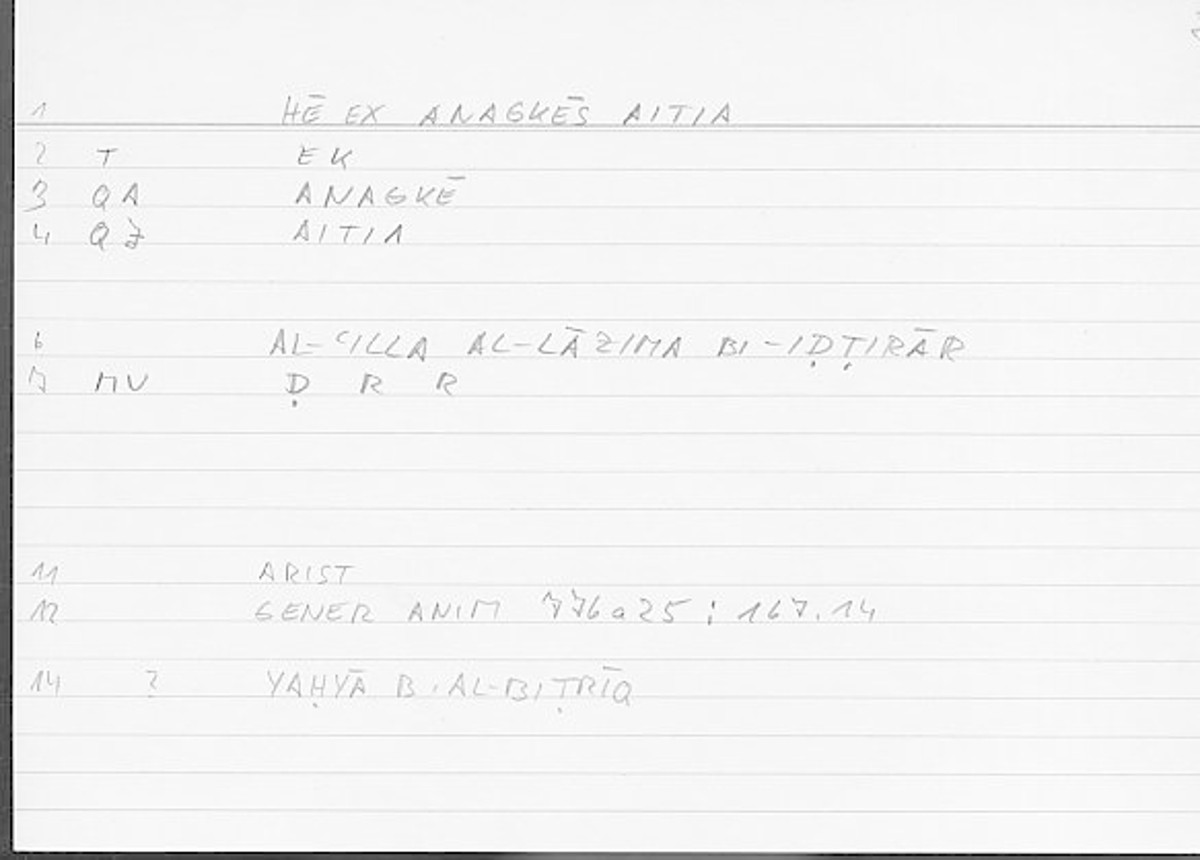 1 HĒ EX ANAGKĒS AITIA
2 T EK
3 QA ANAGKĒ
4 QZ AITIA
6 AL-ʿILLA AL-LĀZIMA BI-IḌṬIRĀR
7 MV Ḍ R R
11 ARIST
12 GENER ANIM 776a25; 167.14
14 ? YAḤYĀ B. AL-BIṬRĪQ